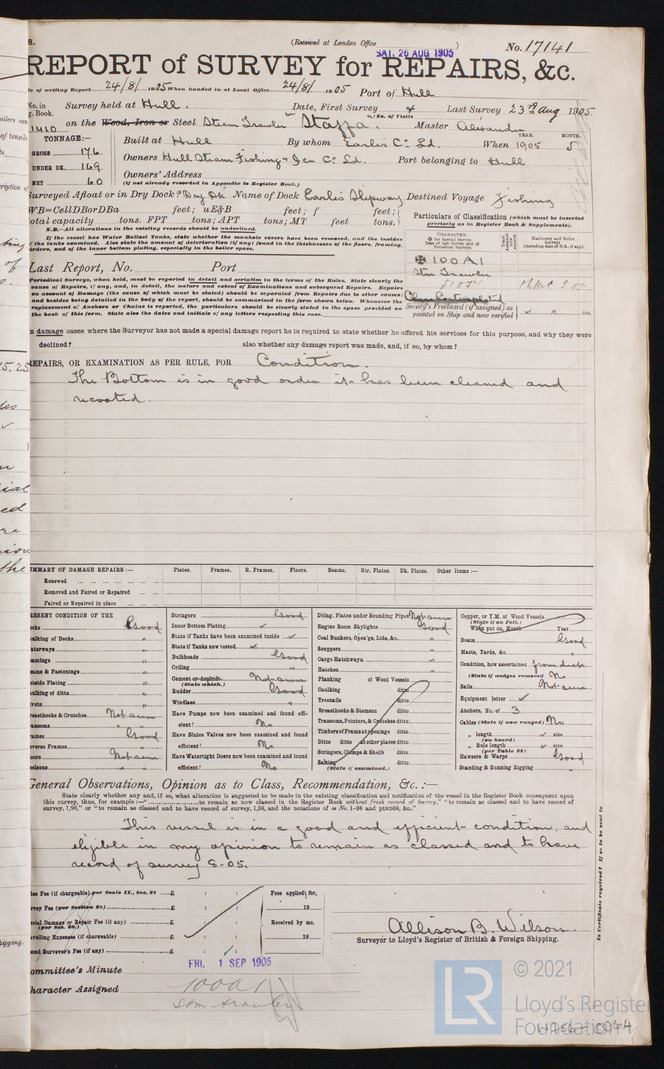 (Received at London Office
SAT. 26 AUG 1905
)
No. 17141
REPORT of SURVEY for REPAIRS, &c.
of writing Report 24/8/1905 When handed in at Local Office 24/8/1905 Port of Hull
No. in Survey held at Hull. Date, First Survey Last Survey 23rd Aug 1905
g. Book. (No. of Visits
1410 on the Wood, Iron or Steel Steam Trawler "Staffa. Master Alexander
TONNAGE:— YEAR. MONTH.
GROSS 176 Built at Hull By whom Earle's Co. Ld. When 1905 5
UNDER DK. 169 Owners Hull Steam Fishing & Ice Co. Ld. Port belonging to Hull
NET 60 Owners' Address
(if not already recorded in Appendix to Register Book.)
Surveyed Afloat or in Dry Dock? Dry Dk Name of Dock Earles Slipway Destined Voyage Fishing
WB=CellDBorDBa feet; uE&B feet; f feet;
total capacity tons. FPT tons; APT tons; MT feet tons.
Particulars of Classification (which must be inserted precisely as in Register Book & Supplements).
N.B.—All alterations in the existing records should be underlined.
If the vessel has Water Ballast Tanks, state whether the manhole covers have been removed, and the insides
of the tanks examined. Also state the amount of deterioration (if any) found in the thicknesses of the floors, framing,
and of the inner bottom plating, especially in the boiler space.
CHARACTER.
✠ 100A1
Stm Trawler
5.05
Last Report, No. Port
Periodical Surveys, when held, must be reported in detail and seriatim in the terms of the Rules. State clearly the
cause of Repairs, if any, and, in detail, the nature and extent of Examinations and subsequent Repairs. Repairs
on account of Damage (the cause of which must be stated) should be separated from Repairs due to other causes;
and besides being detailed in the body of the report, should be summarised in the form shown below. Whenever the
replacement of Anchors or Chains is reported, the particulars should be clearly stated in the space provided on
the back of this form. State also the dates and initials of any letters respecting this case.
Class Contemplated
Society's Freeboard (if assigned) as
painted on Ship and now verified ft. ins.
In damage cases where the Surveyor has not made a special damage report he is required to state whether he offered his services for this purpose, and why they were
declined? also whether any damage report was made, and, if so, by whom?
REPAIRS, OR EXAMINATION AS PER RULE, FOR Condition.
The Bottom is in good order it has been cleaned and
recoated.
SUMMARY OF DAMAGE REPAIRS:— Plates. Frames. R. Frames. Floors. Beams. Str. Plates. Dk. Plates. Other Items:—
Renewed
Removed and Faired or Repaired
Faired or Repaired in place
PRESENT CONDITION OF THE
Decks Good
Caulking of Decks "
Waterways "
Coamings "
Beams & Fastenings "
Outside Plating "
Caulking of ditto "
Rivets "
Breasthooks & Crutches Not seen
Transoms "
Frames Good
Reverse Frames "
Floors Not seen
Keelsons "
Stringers Good
Inner Bottom Plating ✓
State if Tanks have been examined inside ✓
State if Tanks now tested ✓
Bulkheads Good
Ceiling "
Cement or Asphalte Not seen
(State which.)
Rudder Good
Windlass "
Have Pumps now been examined and found efficient? No
Have Sluice Valves now been examined and found
efficient? No
Have Watertight Doors now been examined and found
efficient? No
Dblng. Plates under Sounding Pipes Not seen
Engine Room Skylights Good
Coal Bunkers, Open'gs, Lids, &c. "
Scuppers "
Cargo Hatchways "
Hatches "
Planking of Wood Vessels
Caulking ditto
Treenails ditto
Breasthooks & Stemson ditto
Transoms, Pointers, & Crutches ditto
Timbers of Frame at openings ditto
Ditto ditto at other places ditto
Stringers, Clamps & Shelfs ditto
Salting ditto
(State if examined.)
Copper, or Y.M. of Wood Vessels
(State if on Felt.)
When put on, Month Year
Boats Good
Masts, Yards, &c. "
Condition, how ascertained from deck
(State if wedges removed) No
Sails Not seen
Equipment letter ✓
Anchors, No. of 3
Cables (State if now ranged) No
" length ✓ size
(on board)
" Rule length ✓ size
(per Table 22)
Hawsers & Warps Good
Standing & Running Rigging "
General Observations, Opinion as to Class, Recommendation, &c.:—
State clearly whether any and, if so, what alteration is suggested to be made in the existing classification and notification of the vessel in the Register Book consequent upon
this survey, thus, for example:—" to remain as now classed in the Register Book without fresh record of Survey," "to remain as classed and to have record of
survey, 1,98," or "to remain as classed and to have record of survey, 1,98, and the notations of
This vessel is in a good and efficient condition, and
eligible in my opinion to remain as classed and to have
record of survey 8-05.
Fee (if chargeable) per Scale II., Sec. 27 £ : : Fees applied for,
Survey Fee (per Section 28) £ : : 19
Special Damage or Repair Fee (if any) £ : : Received by me,
(per Sec. 28.)
Travelling Expenses (if chargeable) £ : : 19
Second Surveyor's Fee (if any) £ : :
Allison B. Wilson
Surveyor to Lloyd's Register of British & Foreign Shipping.
FRI. 1 SEP 1905
Committee's Minute
Character Assigned 100A1
Stm trawler
LR
© 2021
Lloyd's Register
Foundation